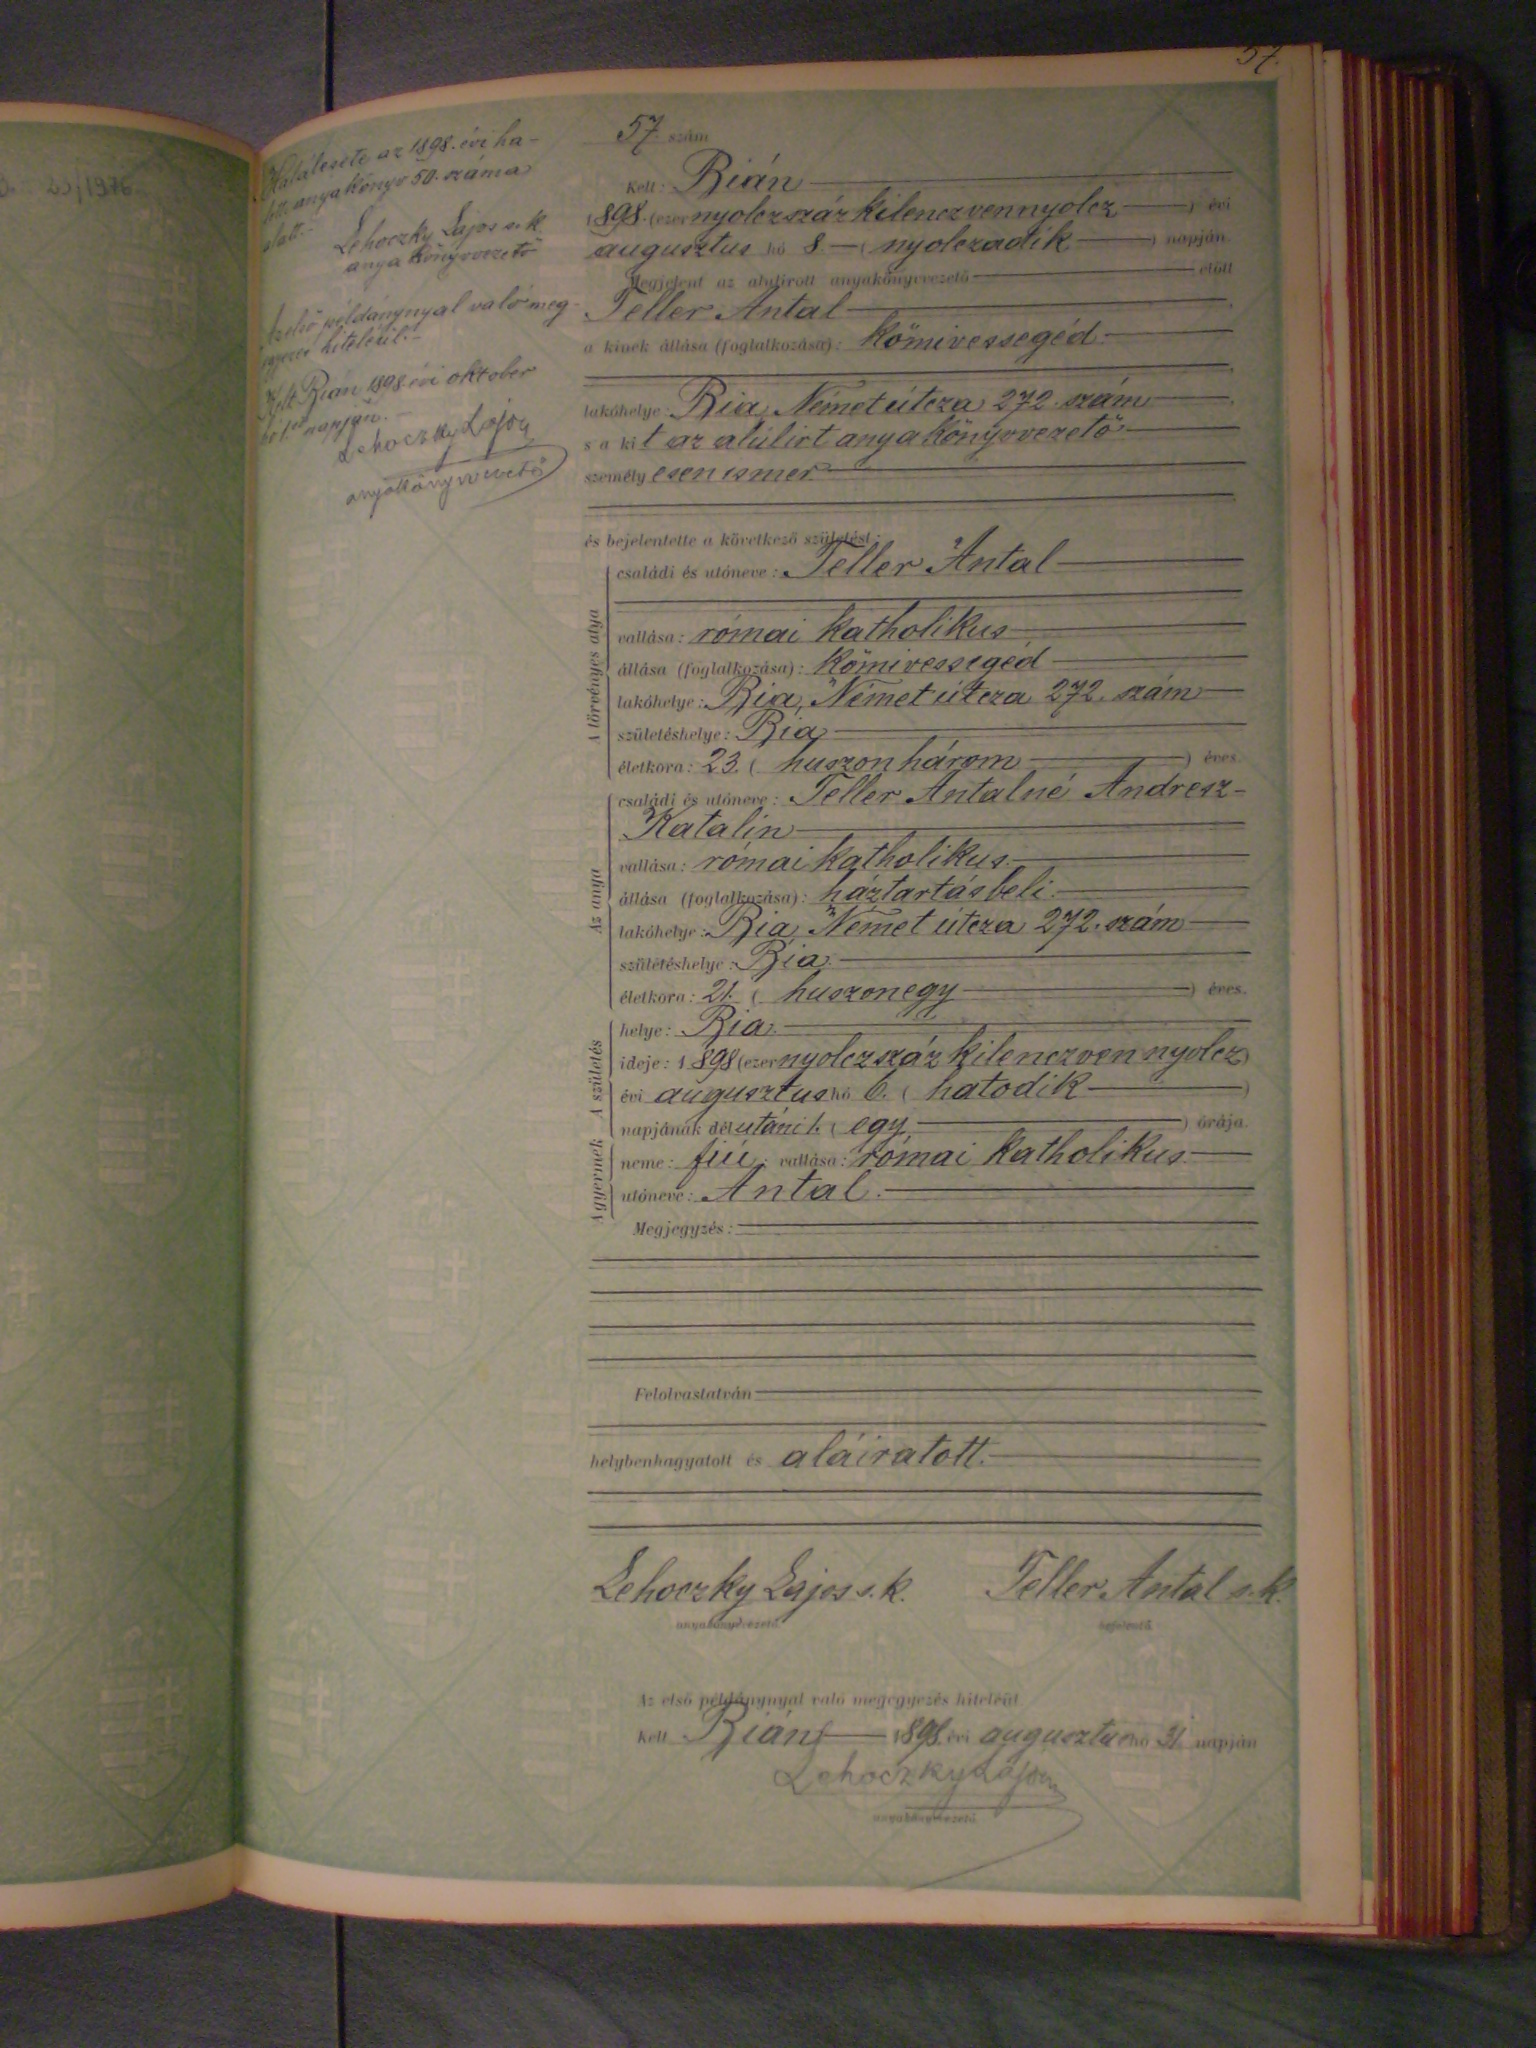 57.
Halálesete az 1898. évi ha-
lotti anyakönyv 50. száma
alatt.-
Lehoczky Lajos s. k.
anyakönyvvezető
Az első példánynyal való meg-
egyezés hiteléül.-
Kelt Bián 1898 évi oktober
hó 1ső napján.-
Lehoczky Lajos
anyakönyvvezető
57. szám
Kelt: Bián
1898. (ezer nyolczszáz kilenczvennyolcz) évi
augusztus hó 8. (nyolczadik) napján.
Megjelent az alulírott anyakönyvvezető előtt
Teller Antal
a kinek állása (foglalkozása): kőmivessegéd.
lakóhelye: Bia, Német útcza 272. szám
s a kit az alúlirt anyakönyvvezető
személyesen ismer
és bejelentette a következő születést:
A törvényes atya
családi és utóneve: Teller Antal
vallása: római katholikus
állása (foglalkozása): kőmivessegéd
lakóhelye: Bia, Német útcza 272. szám
születéshelye: Bia,
életkora: 23. (huszonhárom) éves.
Az anya
családi és utóneve: Teller Antalné Andresz-
Katalin
vallása: római katholikus.
állása (foglalkozása): háztartásbeli.
lakóhelye: Bia, Német útcza 272. szám
születéshelye: Bia.
életkora: 21. (huszonegy) éves.
A születés
helye: Bia.
ideje: 1898 (ezer nyolczszáz kilenczvennyolcz)
évi augusztus hó 6. (hatodik)
napjának délutáni 1. (egy) órája.
A gyermek
neme: fiú; vallása: római katholikus.
utóneve: Antal.
Megjegyzés:
Felolvastatván
helybenhagyatott és aláiratott.
Lehoczky Lajos s. k. Teller Antal s. k.
anyakönyvvezető. bejelentő.
Az első példánynyal való megegyezés hiteléül
Kelt Bián 1898. évi augusztus hó 31. napján
Lehoczky Lajos
anyakönyvvezető.